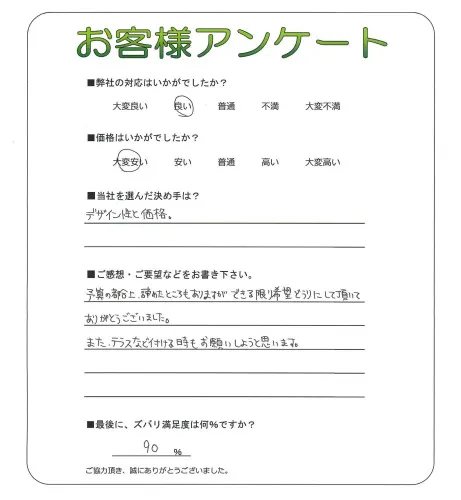 お客様アンケート
■弊社の対応はいかがでしたか？
大変良い 良い 普通 不満 大変不満
■価格はいかがでしたか？
大変安い 安い 普通 高い 大変高い
■当社を選んだ決め手は？
デザイン性と価格。
■ご感想・ご要望などをお書き下さい。
予算の都合上、諦めたところもありますができる限り希望どうりにして頂いて
ありがとうございました。
また、テラスなど付ける時もお願いしようと思います。
■最後に、ズバリ満足度は何％ですか？
90 %
ご協力頂き、誠にありがとうございました。